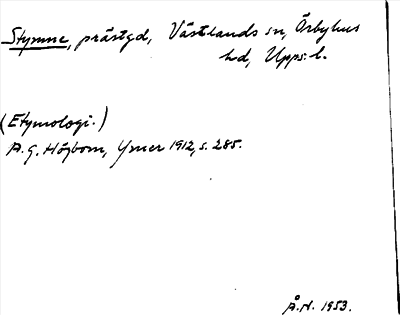 Stymne, prästgd, Västlands sn, Örbyhus
hd, Upps. l.
(Etymologi.)
A. G. Högbom, Ymer 1912, s. 285.
Å. H. 1953.